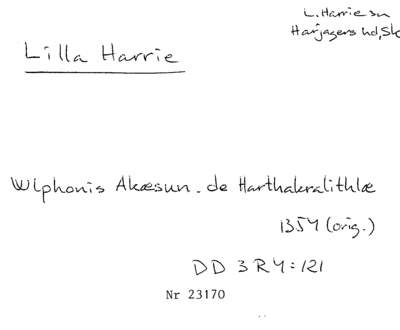 L. Harrie sn
Harjagers hd, Sk
Lilla Harrie
Wlphonis Akæsun. de Harthakralithlæ
1354 (orig.)
DD 3 R 4:121
Nr 23170